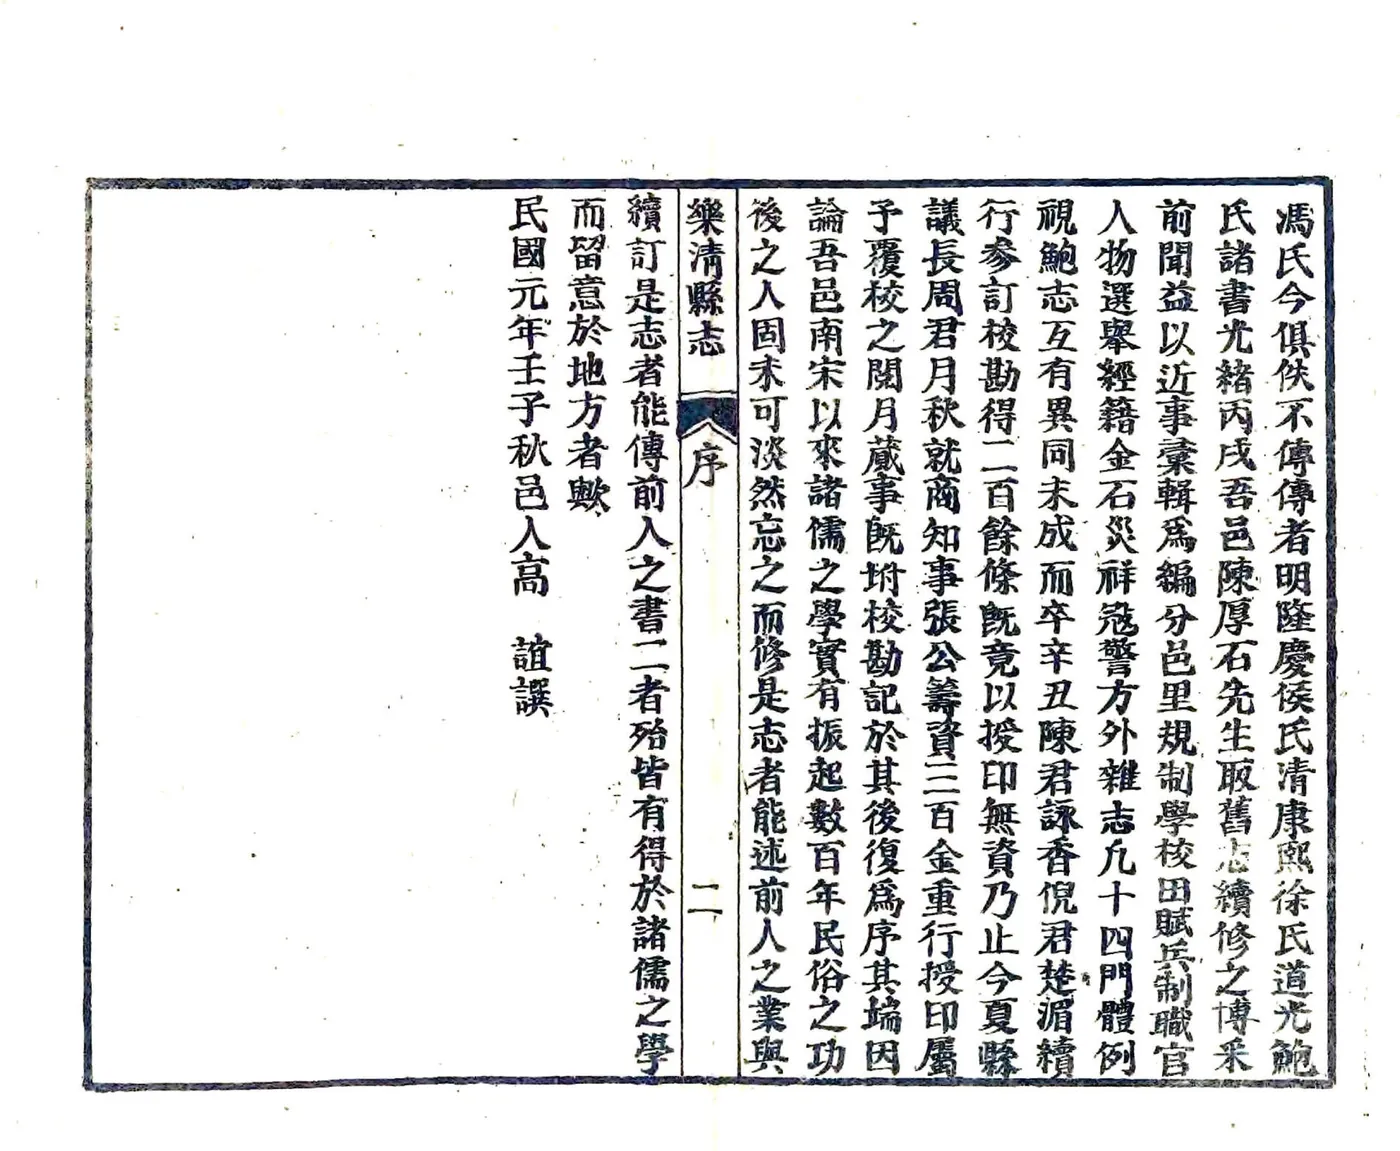 馮氏今俱佚不傳傳者明隆慶侯氏清康熙徐氏道光鮑
氏諸書光緒丙戌吾邑陳厚石先生取舊志續修之博采
前聞益以近事彙輯爲編分邑里規制學校田賦兵制職官
人物選舉經籍金石災祥寇警方外雜志凡十四門體例
視鮑志互有異同未成而卒辛丑陳君詠香倪君楚湄續
行參訂校勘得二百餘條旣竟以授印無資乃止今夏縣
議長周君月秋就商知事張公籌資三百金重行授印屬
予覆校之閱月蕆事旣坿校勘記於其後復爲序其端因
論吾邑南宋以來諸儒之學實有振起數百年民俗之功
後之人固未可淡然忘之而修是志者能述前人之業與
樂清縣志
序
二
續訂是志者能傳前人之書二者殆皆有得於諸儒之學
而留意於地方者歟
民國元年壬子秋邑人高　誼譔